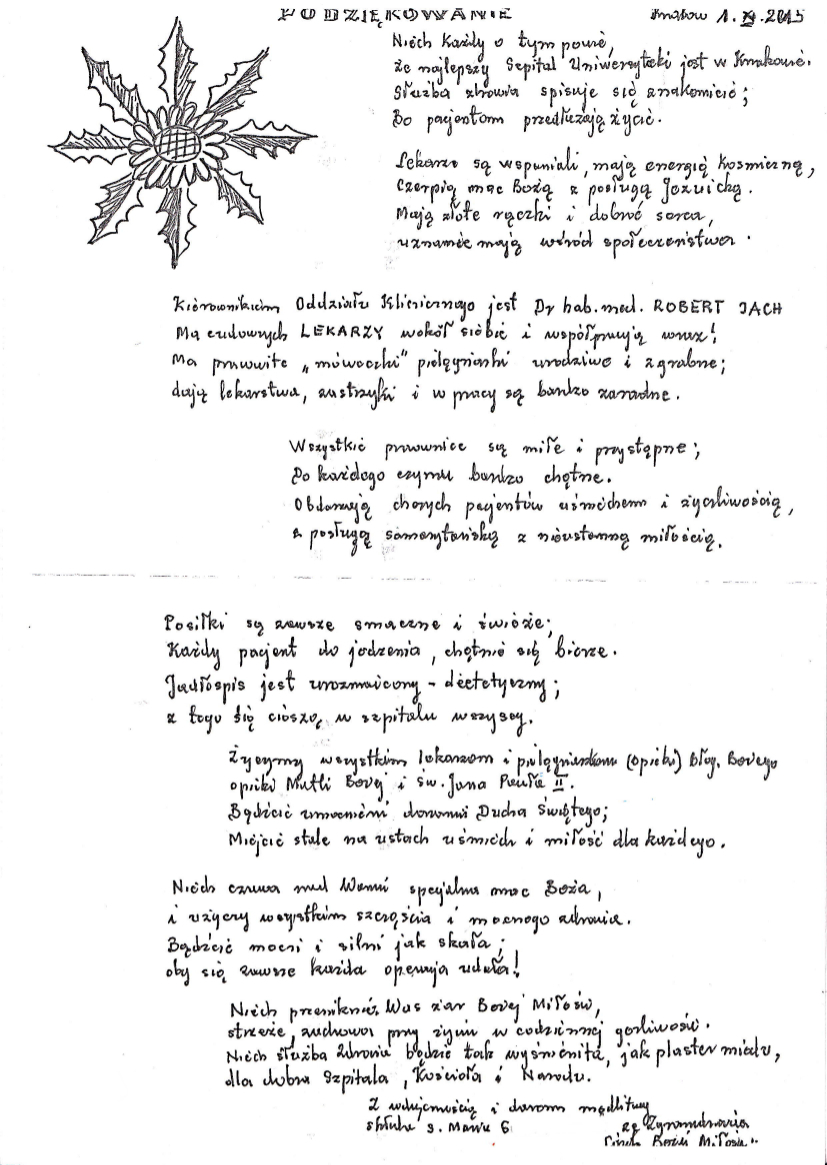 PODZIĘKOWANIE
Kraków 1.XI.2015
Niech każdy o tym powie,
że najlepszy Szpital Uniwersytecki jest w Krakowie.
Służba zdrowia spisuje się znakomicie;
Bo pacjentom przedłużają życie.
Lekarze są wspaniali, mają energię kosmiczną,
Czerpią moc Bożą z posługą Jezuicką.
Mają złote rączki i dobre serca,
uznanie mają wśród społeczeństwa.
Kierownikiem Oddziału Klinicznego jest Dr hab. med. ROBERT JACH
Ma cudownych LEKARZY wokół siebie i współpracują wraz!
Ma pracowite „mróweczki" pielęgniarki urodziwe i zgrabne;
dają lekarstwa, zastrzyki i w pracy są bardzo zaradne.
Wszystkie pracownice są miłe i przystępne;
Do każdego czynu bardzo chętne.
Obdarzają chorych pacjentów uśmiechem i życzliwością,
z posługą samarytańską z nieustanną miłością.
Posiłki są zawsze smaczne i świeże;
Każdy pacjent do jedzenia, chętnie się bierze.
Jadłospis jest urozmaicony - dietetyczny;
z tego się cieszą, w szpitalu wszyscy.
Życzymy wszystkim lekarzom i pielęgniarkom (opieki) Błog. Bożego
opieki Matki Bożej i św. Jana Pawła II.
Bądźcie umocnieni darami Ducha Świętego;
Miejcie stale na ustach uśmiech i miłość dla każdego.
Niech czuwa nad Wami specjalna moc Boża,
i użyczy wszystkim szczęścia i mocnego zdrowia.
Bądźcie mocni i silni jak skała;
oby się zawsze każda operacja udała!
Niech przeniknie Was żar Bożej Miłości,
strzeże, zachowa przy życiu w codziennej gorliwości.
Niech służba Zdrowia będzie tak wyśmienita, jak plaster miodu,
dla dobra Szpitala, Kościoła i Narodu.
Z wdzięcznością i darem modlitwy
s. Maria